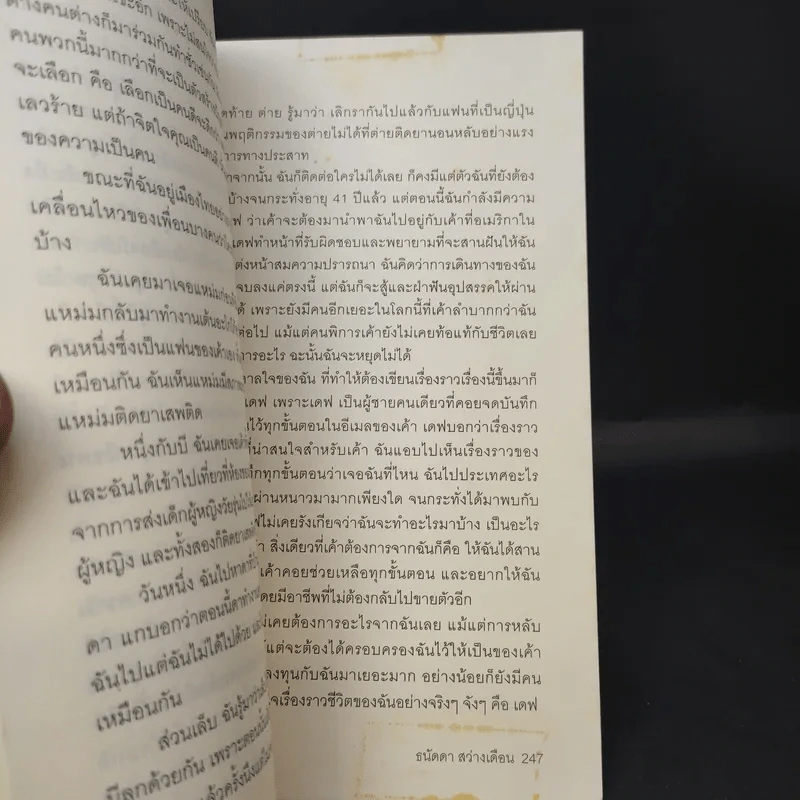 ต่างคนต่างก็มาร่วมกันทำชั่ว
คนพวกนี้มากกว่าที่จะเป็นตัว
จะเลือก คือ เลือกเป็นคนดี
เลวร้าย แต่ถ้าจิตใจคุณเป็น
ของความเป็นคน
ขณะที่ฉันอยู่เมืองไทย
เคลื่อนไหวของเพื่อนบางคน
บ้าง
ฉันเคยมาเจอแหม่ม
แหม่มกลับมาทำงานเต้น
คนหนึ่งซึ่งเป็นแฟนของเค้า
เหมือนกัน ฉันเห็นแหม่ม
แหม่มติดยาเสพติด
หนึ่งกับบี ฉันเคยเจอ
และฉันได้เข้าไปเที่ยวที่ห้อง
จากการส่งเด็กผู้หญิงวัยรุ่น
ผู้หญิง และทั้งสองก็ติดยา
วันหนึ่ง ฉันไปหา
ดา แกบอกว่าตอนนี้ดาทำงาน
ฉันไปแต่ฉันไม่ได้ไปด้วย
เหมือนกัน
ส่วนเล็บ ฉันรู้มาว่า
มีลูกด้วยกัน เพราะตอนนั้น
ท้าย ต่าย รู้มาว่า เลิกรากันไปแล้วกับแฟนที่เป็นญี่ปุ่น
พฤติกรรมของต่ายไม่ได้ที่ต่ายติดยานอนหลับอย่างแรง
การทางประสาท
จากนั้น ฉันก็ติดต่อใครไม่ได้เลย ก็คงมีแต่ตัวฉันที่ยังต้อง
บ้างจนกระทั่งอายุ 41 ปีแล้ว แต่ตอนนี้ฉันกำลังมีความ
ว่าเค้าจะต้องมานำพาฉันไปอยู่กับเค้าที่อเมริกาใน
เดฟทำหน้าที่รับผิดชอบและพยายามที่จะสานฝันให้ฉัน
หน้าสมความปรารถนา ฉันคิดว่าการเดินทางของฉัน
จบลงแค่ตรงนี้ แต่ฉันก็จะสู้และฝ่าฟันอุปสรรคให้ผ่าน
เพราะยังมีคนอีกเยอะในโลกนี้ที่เค้าลำบากกว่าฉัน
ต่อไป แม้แต่คนพิการเค้ายังไม่เคยท้อแท้กับชีวิตเลย
การอะไร ฉะนั้นฉันจะหยุดไม่ได้
ใจของฉัน ที่ทำให้ต้องเขียนเรื่องราวเรื่องนี้ขึ้นมาก็
เดฟ เพราะเดฟ เป็นผู้ชายคนเดียวที่คอยจดบันทึก
ไว้ทุกขั้นตอนในอีเมลของเค้า เดฟบอกว่าเรื่องราว
ที่น่าสนใจสำหรับเค้า ฉันแอบไปเห็นเรื่องราวของ
ทุกขั้นตอนว่าเจอฉันที่ไหน ฉันไปประเทศอะไร
ผ่านหนาวมามากเพียงใด จนกระทั่งได้มาพบกับ
ไม่เคยรังเกียจว่าฉันจะทำอะไรมาบ้าง เป็นอะไร
สิ่งเดียวที่เค้าต้องการจากฉันก็คือ ให้ฉันได้สาน
เค้าคอยช่วยเหลือทุกขั้นตอน และอยากให้ฉัน
โดยมีอาชีพที่ไม่ต้องกลับไปขายตัวอีก
ไม่เคยต้องการอะไรจากฉันเลย แม้แต่การหลับ
แต่จะต้องได้ครอบครองฉันไว้ให้เป็นของเค้า
ลงทุนกับฉันมาเยอะมาก อย่างน้อยก็ยังมีคน
เรื่องราวชีวิตของฉันอย่างจริงๆ จังๆ คือ เดฟ
ธนัดดา สว่างเดือน 247